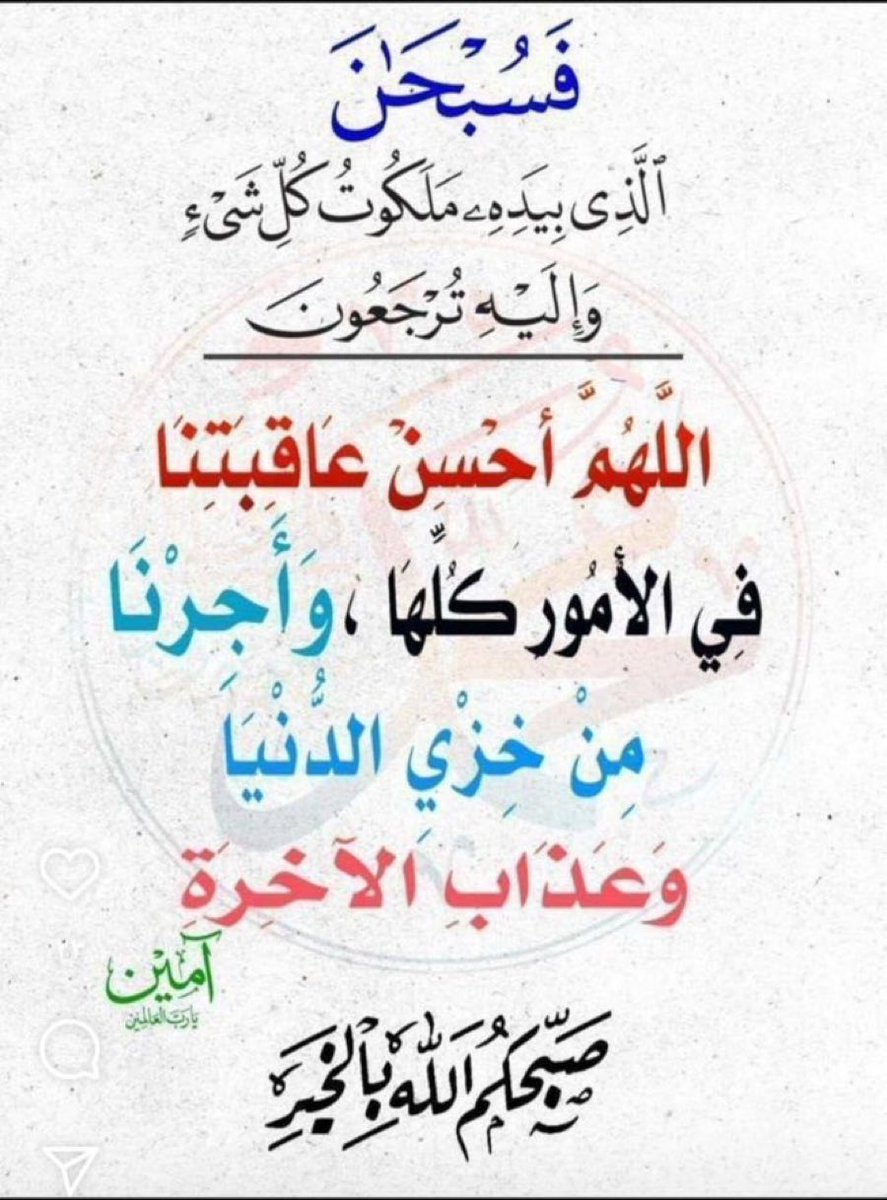 فَسُبْحَٰنَ
ٱلَّذِى بِيَدِهِۦ مَلَكُوتُ كُلِّ شَىْءٍ
وَإِلَيْهِ تُرْجَعُونَ
اللَّهُمَّ أَحْسِنْ عَاقِبَتِنَا
فِي الأُمُورِ كُلِّهَا ، وَأَجِرْنَا
مِنْ خِزْيِ الدُّنْيَا
وَعَذَابِ الآخِرَةِ
آمِيْن
يَارَبَّ العَالمِين
صَبَّحكُم اللّٰه بِالْخَيرِ